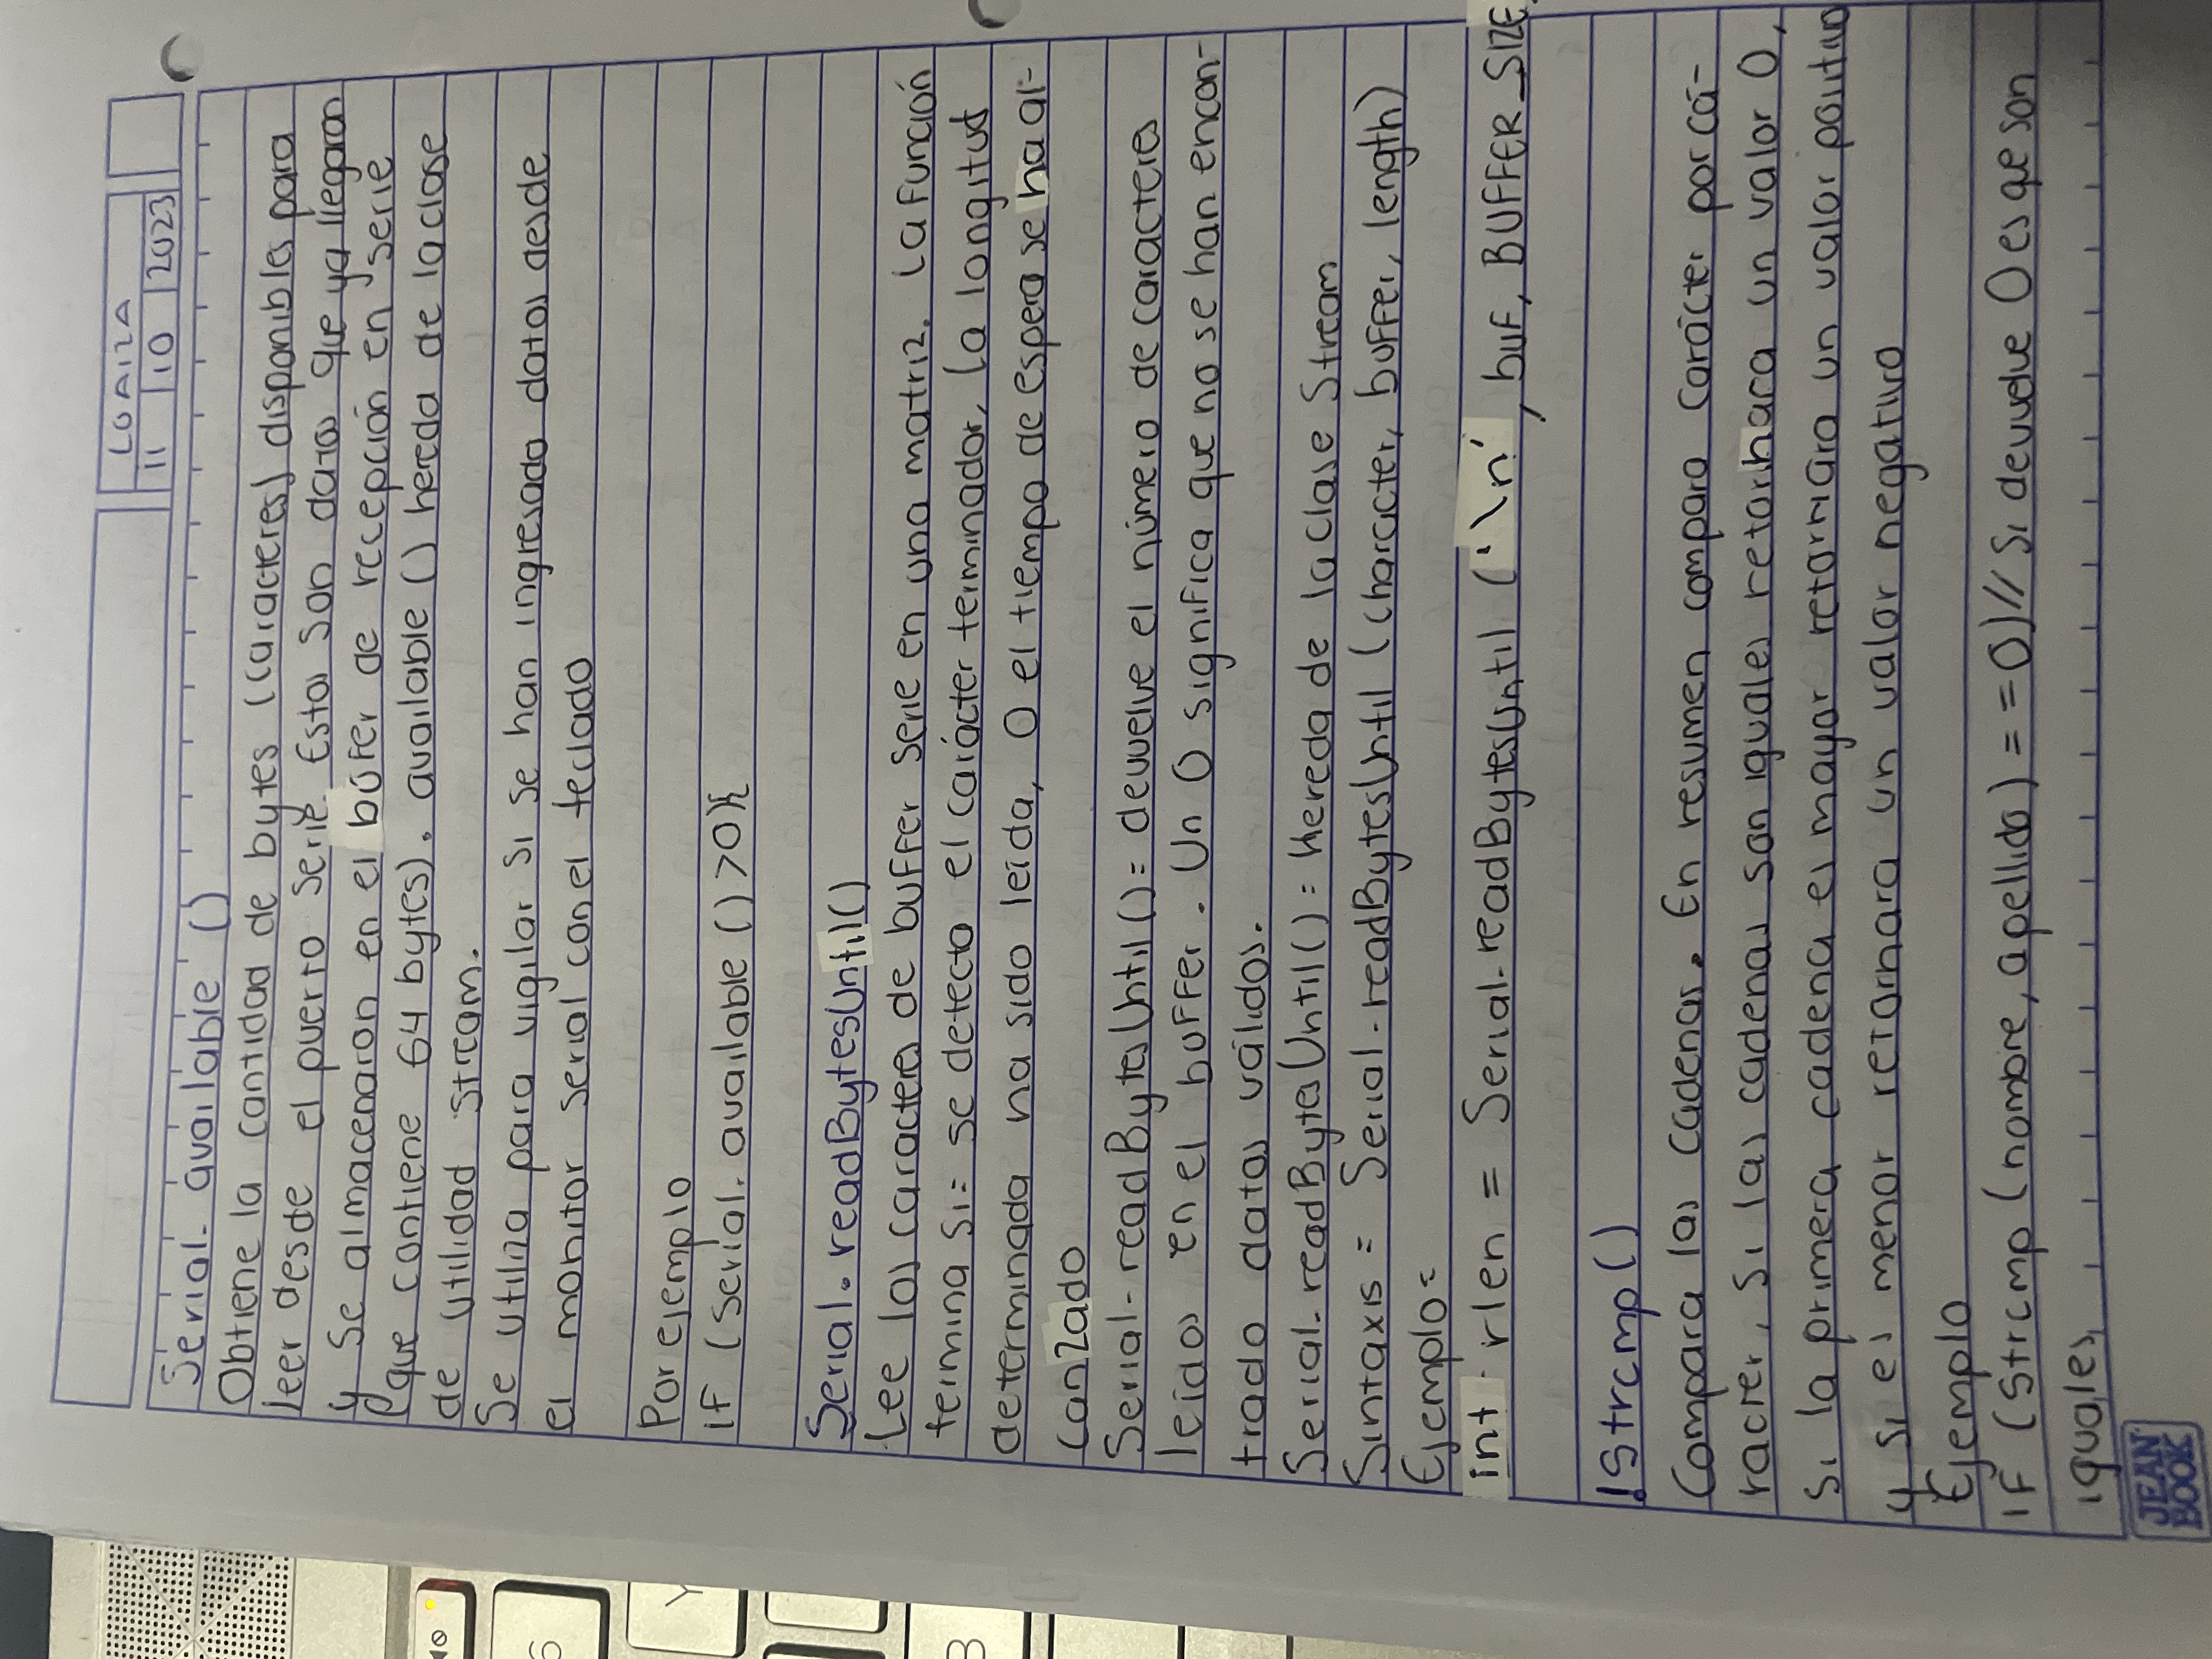 LOAIZA
11 10 2023
Serial. available ()
Obtiene la cantidad de bytes (caracteres) disponibles para
leer desde el puerto serie. Estos son datos que ya llegaron
y se almacenaron en el búfer de recepción en serie
(que contiene 64 bytes). available () hereda de la clase
de utilidad stream.
Se utiliza para vigilar si se han ingresado datos desde
el monitor serial con el teclado
Por ejemplo
if (serial. available () >0){
Serial. readBytesUntil()
Lee los caracteres de buffer serie en una matriz. La función
termina si= se detecto el carácter terminador, la longitud
determinada ha sido leída, O el tiempo de espera se ha al-
canzado
Serial-readBytesUntil()= devuelve el número de caracteres
leídos en el buffer. Un 0 significa que no se han encon-
trado datos válidos.
Serial.readBytesUntil()= Hereda de la clase Stream
Sintaxis = Serial.readBytesUntil (character, buffer, length)
Ejemplo=
int rlen = Serial.readBytesUntil ('\n', buf, BUFFER_SIZE
!strcmp()
Compara las cadenas. En resumen compara carácter por cá-
racter, si las cadenas son iguales retornara un valor 0,
si la primera cadena es mayor retornara un valor positivo
y si es menor retornara un valor negativo
Ejemplo
if (strcmp (nombre, apellido) ==0)// Si devuelve 0 es que son
iguales,
JEAN BOOK
6
Y
B